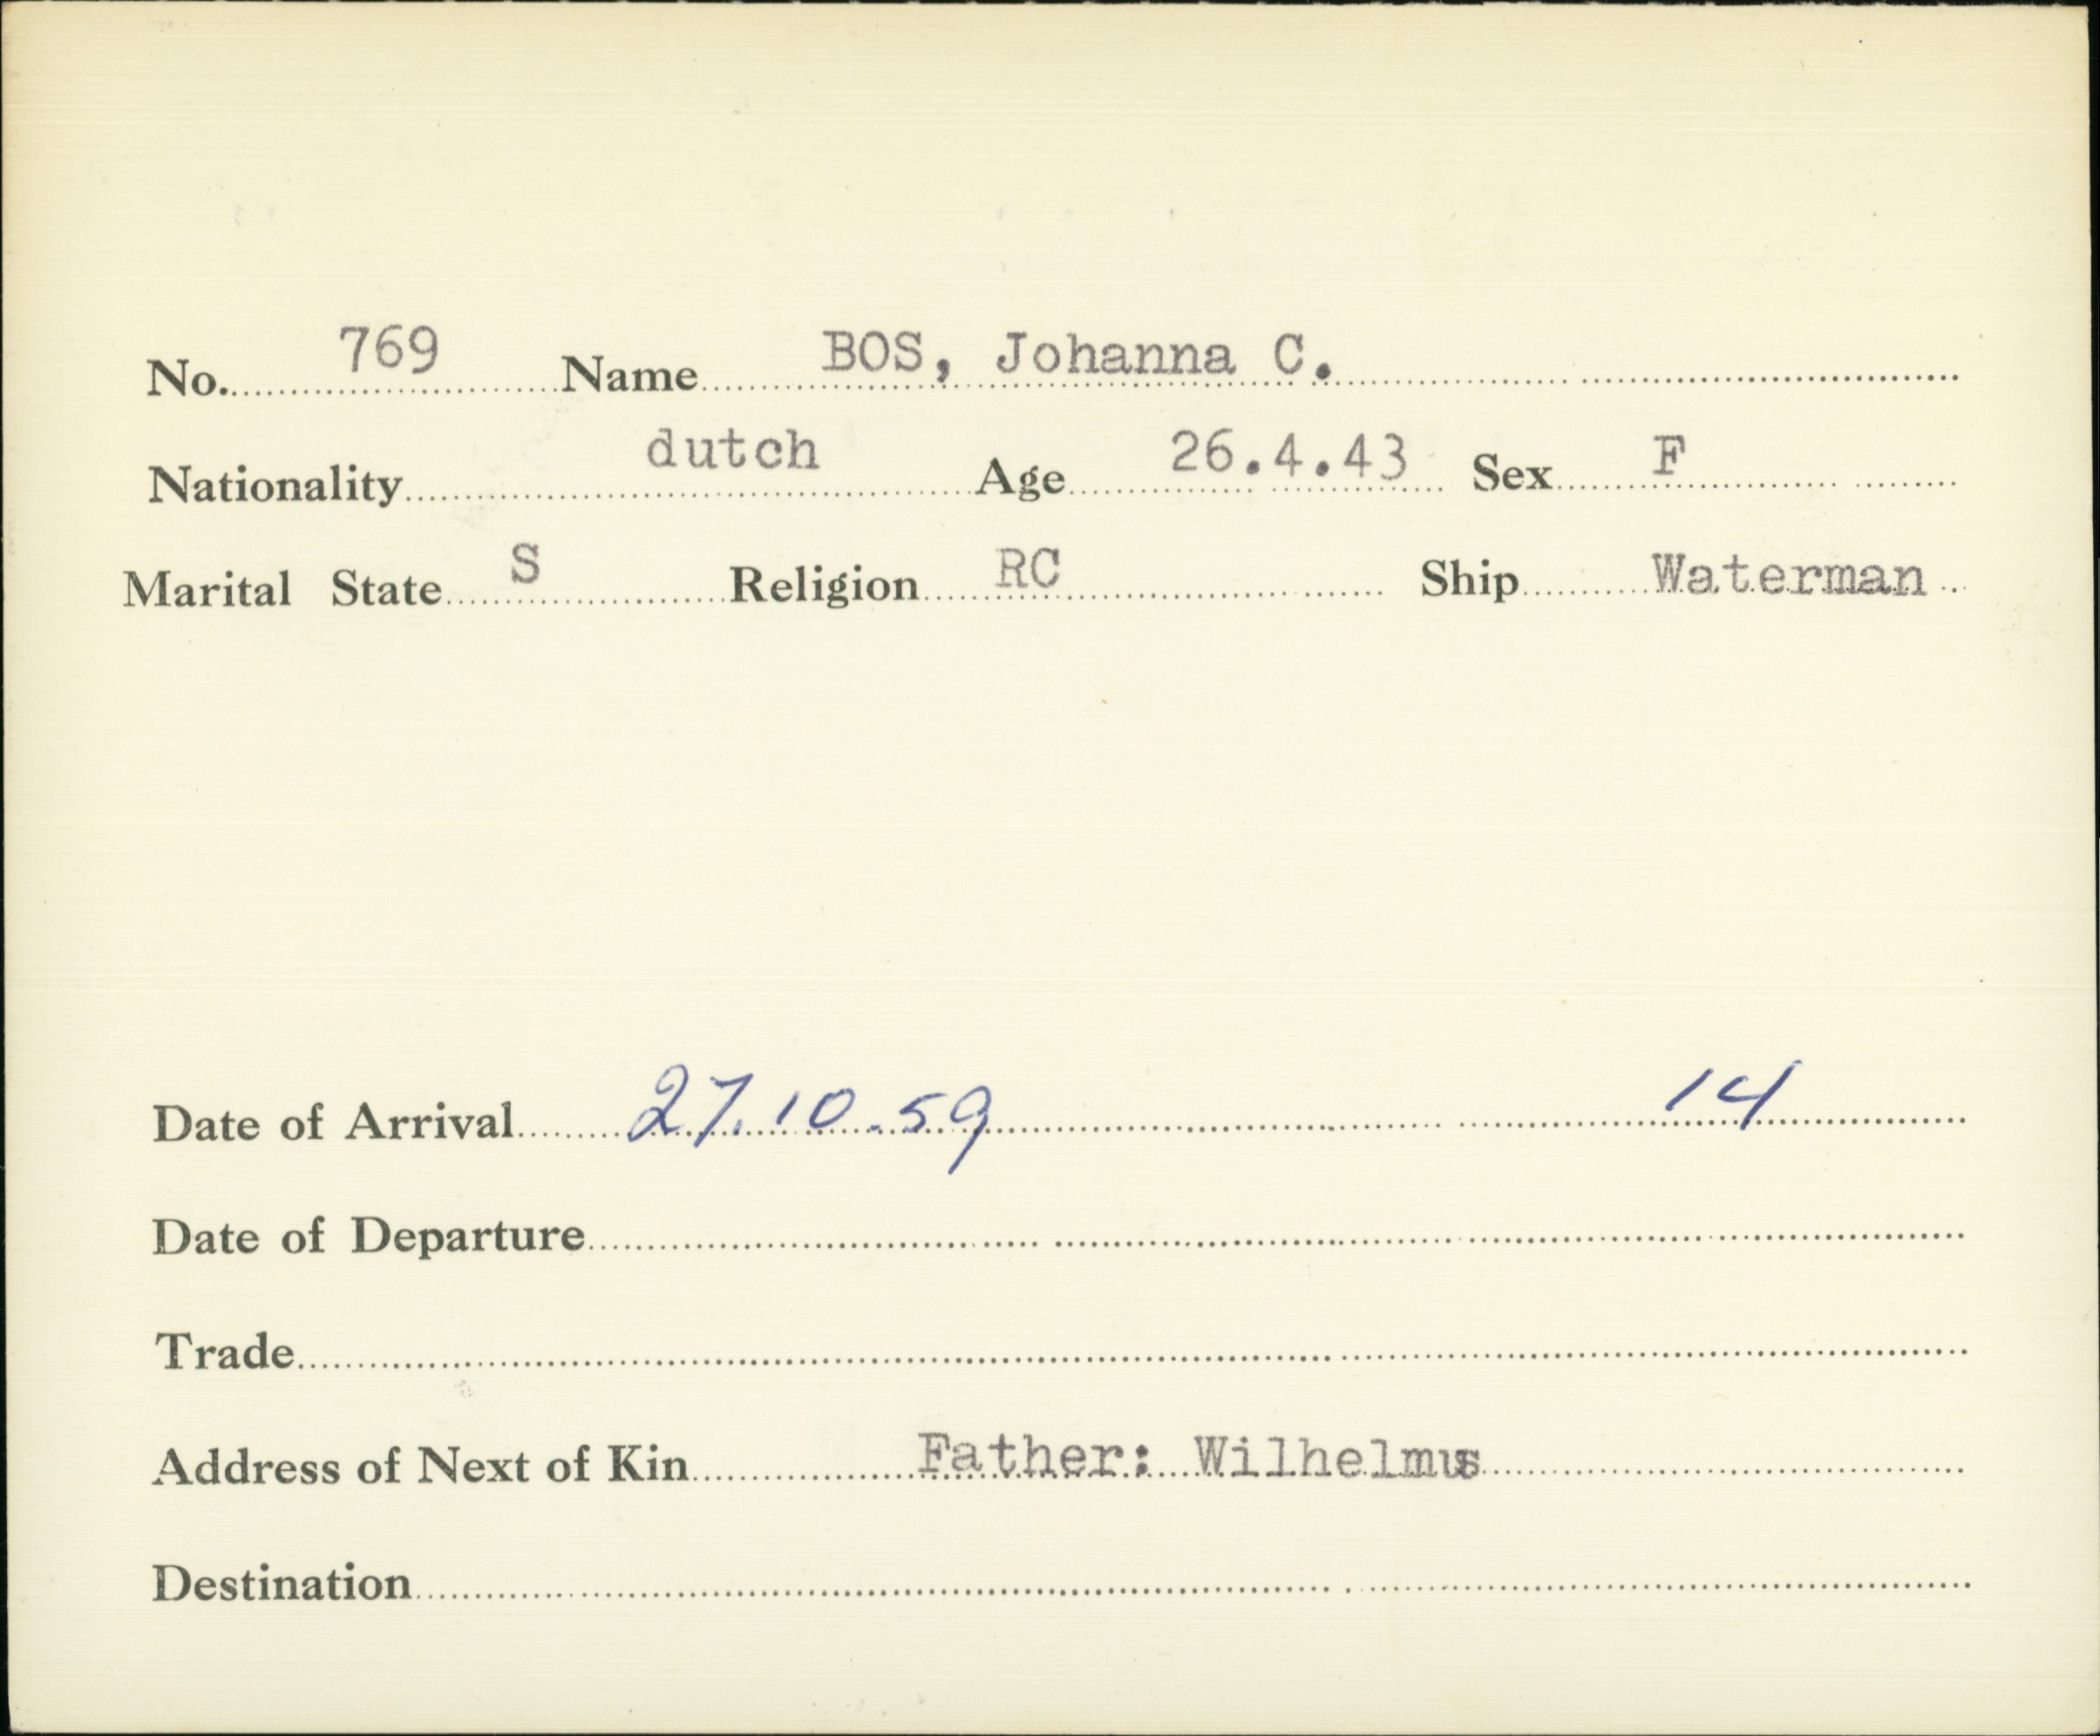 No. 769 Name BOS, Johanna C.
Nationality dutch Age 26.4.43 Sex F
Marital State S Religion RC Ship Waterman
Date of Arrival 27.10.59 14
Date of Departure
Trade
Address of Next of Kin Father: Wilhelmus
Destination